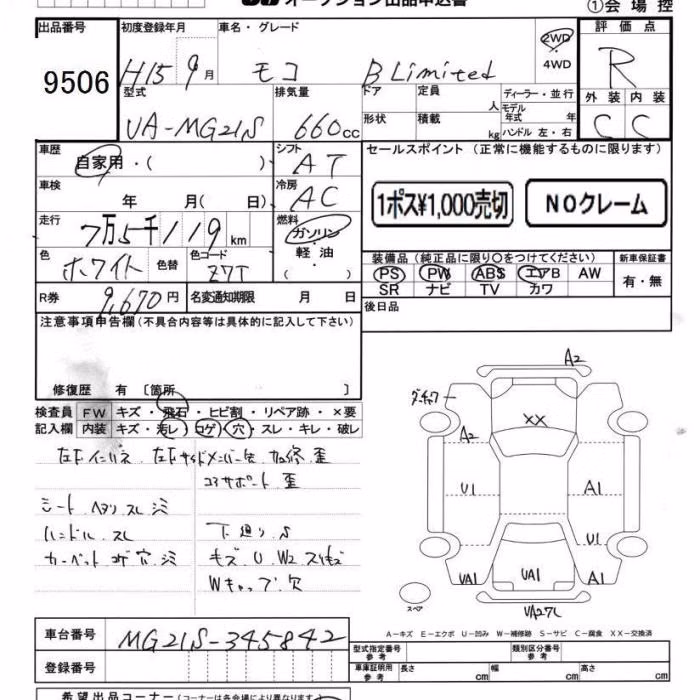 オークション出品申込書
①会場控
出品番号 初度登録年月 車名・グレード 評価点
9506 H15 9月 モコ B Limited 2WD R
4WD
型式 排気量 ドア 定員 人 ディーラー・並行 外装 内装
UA-MG21S 660cc 形状 積載 kg モデル年式 年 C C
ハンドル 左・右
車歴 シフト セールスポイント (正常に機能するものに限ります)
自家用・( ) AT
車検 年 月( 日) 冷房 AC 1ポス¥1,000売切 NOクレーム
走行 7万5千119km 燃料 ガソリン
軽油
( )
色 ホワイト 色替 色コード Z7T
装備品 (純正品に限り○をつけてください) 新車保証書
PS PW ABS エアB AW 有・無
SR ナビ TV カワ
R券 9,670円 名変通知期限 月 日 後日品
注意事項申告欄 (不具合内容等は具体的に記入して下さい)
修復歴 有 〔箇所 〕
検査員 FW キズ・飛石・ヒビ割・リペア跡・×要
記入欄 内装 キズ・汚レ・コゲ・穴・スレ・キレ・破レ
左F インパネ 左F サイドメンバー 歪
コアサポート 歪
シート ヘタリ スレ シミ
ハンドル スレ 下廻り S
カーペット コゲ 穴 シミ キズ U W2
Wキャップ 欠
A2
A2
XX
U1 A1
U1
UA1 UA1 A1
スペア
UA27L
A-キズ E-エクボ U-凹み W-補修跡 S-サビ C-腐食 XX-交換済
車台番号 MG21S-345842
型式指定番号 参考 類別区分番号 参考
登録番号
車庫証明用 参考 長さ cm 幅 cm 高さ cm
希望出品コーナー (コーナーは各会場により異なります)